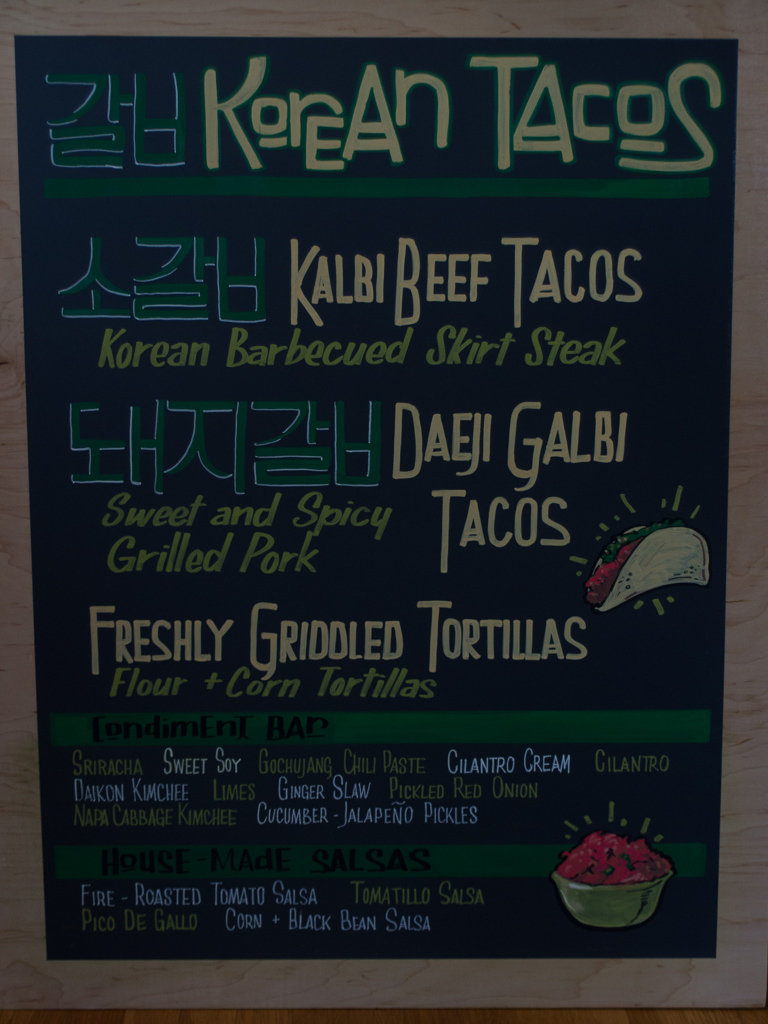 갈비 Korean Tacos
소갈비 Kalbi Beef Tacos
Korean Barbecued Skirt Steak
돼지갈비 Daeji Galbi
Tacos
Sweet and Spicy
Grilled Pork
Freshly Griddled Tortillas
Flour + Corn Tortillas
Condiment Bar
Sriracha Sweet Soy Gochujang Chili Paste Cilantro Cream Cilantro
Daikon Kimchee Limes Ginger Slaw Pickled Red Onion
Napa Cabbage Kimchee Cucumber-Jalapeño Pickles
House-Made Salsas
Fire-Roasted Tomato Salsa Tomatillo Salsa
Pico De Gallo Corn + Black Bean Salsa